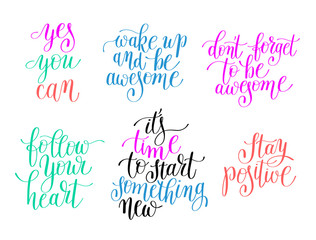 yes
you
can
wake up
and be
awesome
don't forget
to be
awesome
follow
your
heart
it's
time
to start
something
new
Stay
positive